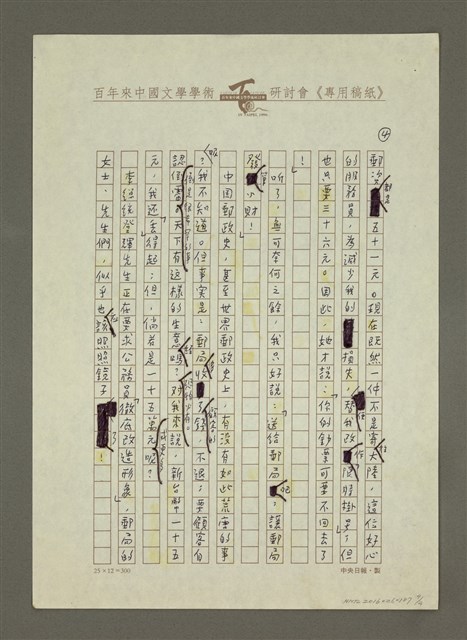 百年來中國文學學術研討會《專用稿紙》
④
郵资對吉五十一元。現在既然一件不是寄往大陸,這位好心
的服務員,為減少我的損失,替我改作限時掛號了。但
也只要三十六元。因此,她才說:你的鈔票可要不回去了
!」
聽了,無可奈何之餘,我只好說:「送給郵局吧,讓郵局
發筆小財!」
中国郵政史,甚至世界郵政史上,有没有如此荒唐的事
呢?我不知道。但事實是:郵局收錯了錢,不退;要顧客自
認倒霉。天下有這樣的生意嗎?對我來說,新台幣一十五
元,我还丢得起;但,倘若是一十五萬元呢?」
李總統登輝先生正在要求公務員徹底改造形象,郵局的
女士、先生們,似乎也應該照照鏡子了!
25×12=300
中央日報・製